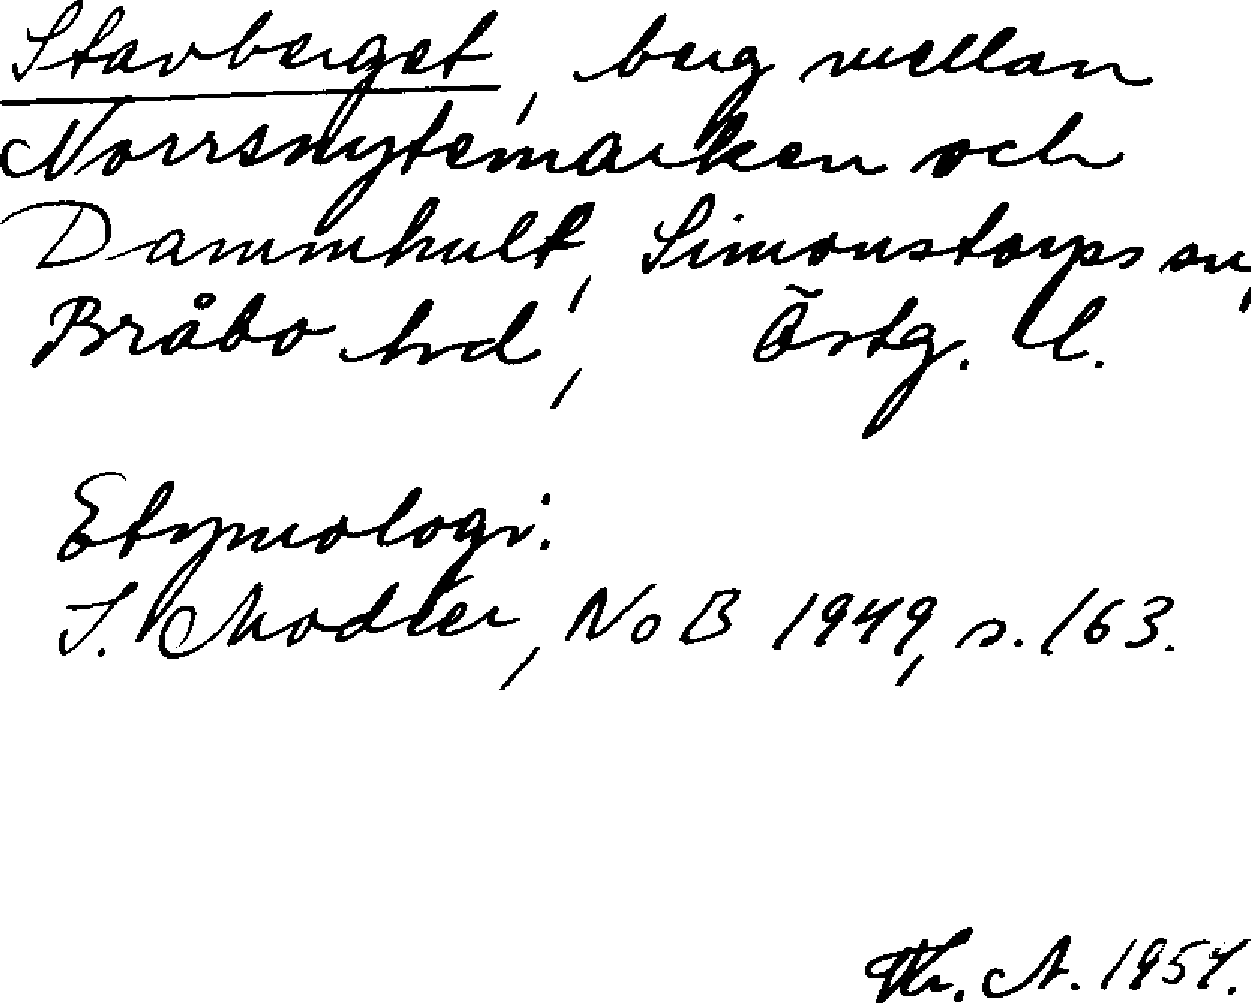 Stavberget, berg mellan
Norrsnytemarken och
Dammhult, Simonstorps sn,
Bråbo hd, Östg. l.
Etymologi:
I. Modéer, NoB 1949, s. 163.
Th. A. 1954.